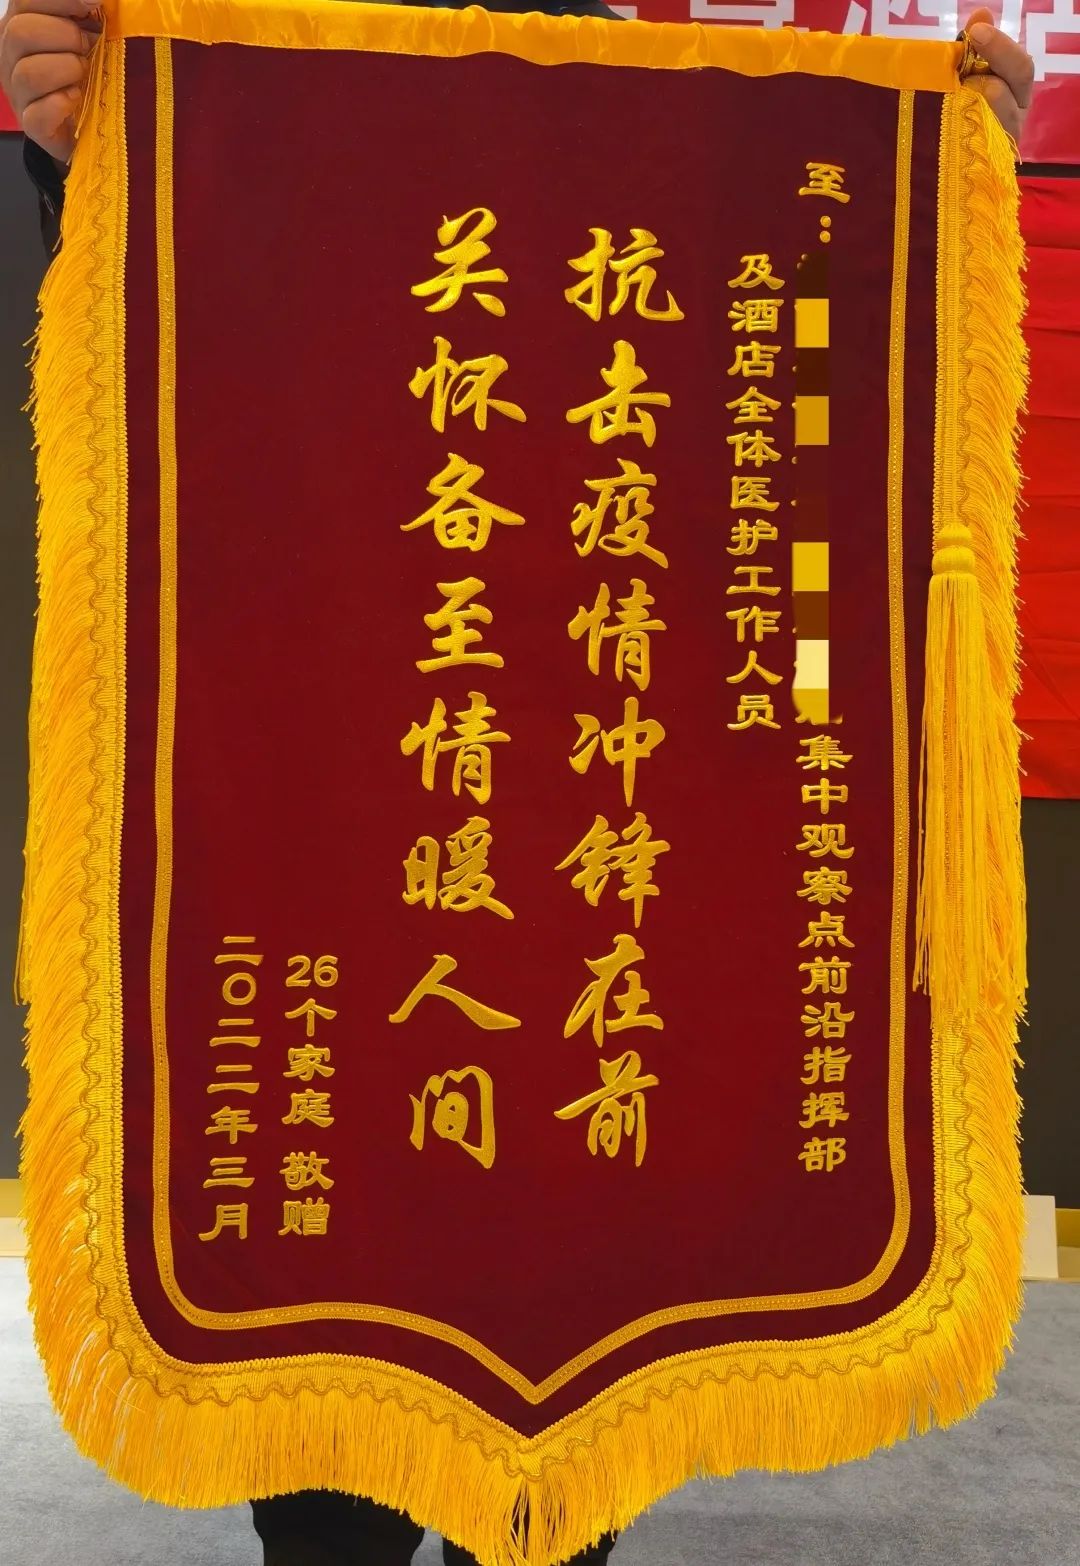 至：
集中观察点前沿指挥部
及酒店全体医护工作人员
抗击疫情冲锋在前
关怀备至情暖人间
26个家庭 敬赠
二〇二二年三月